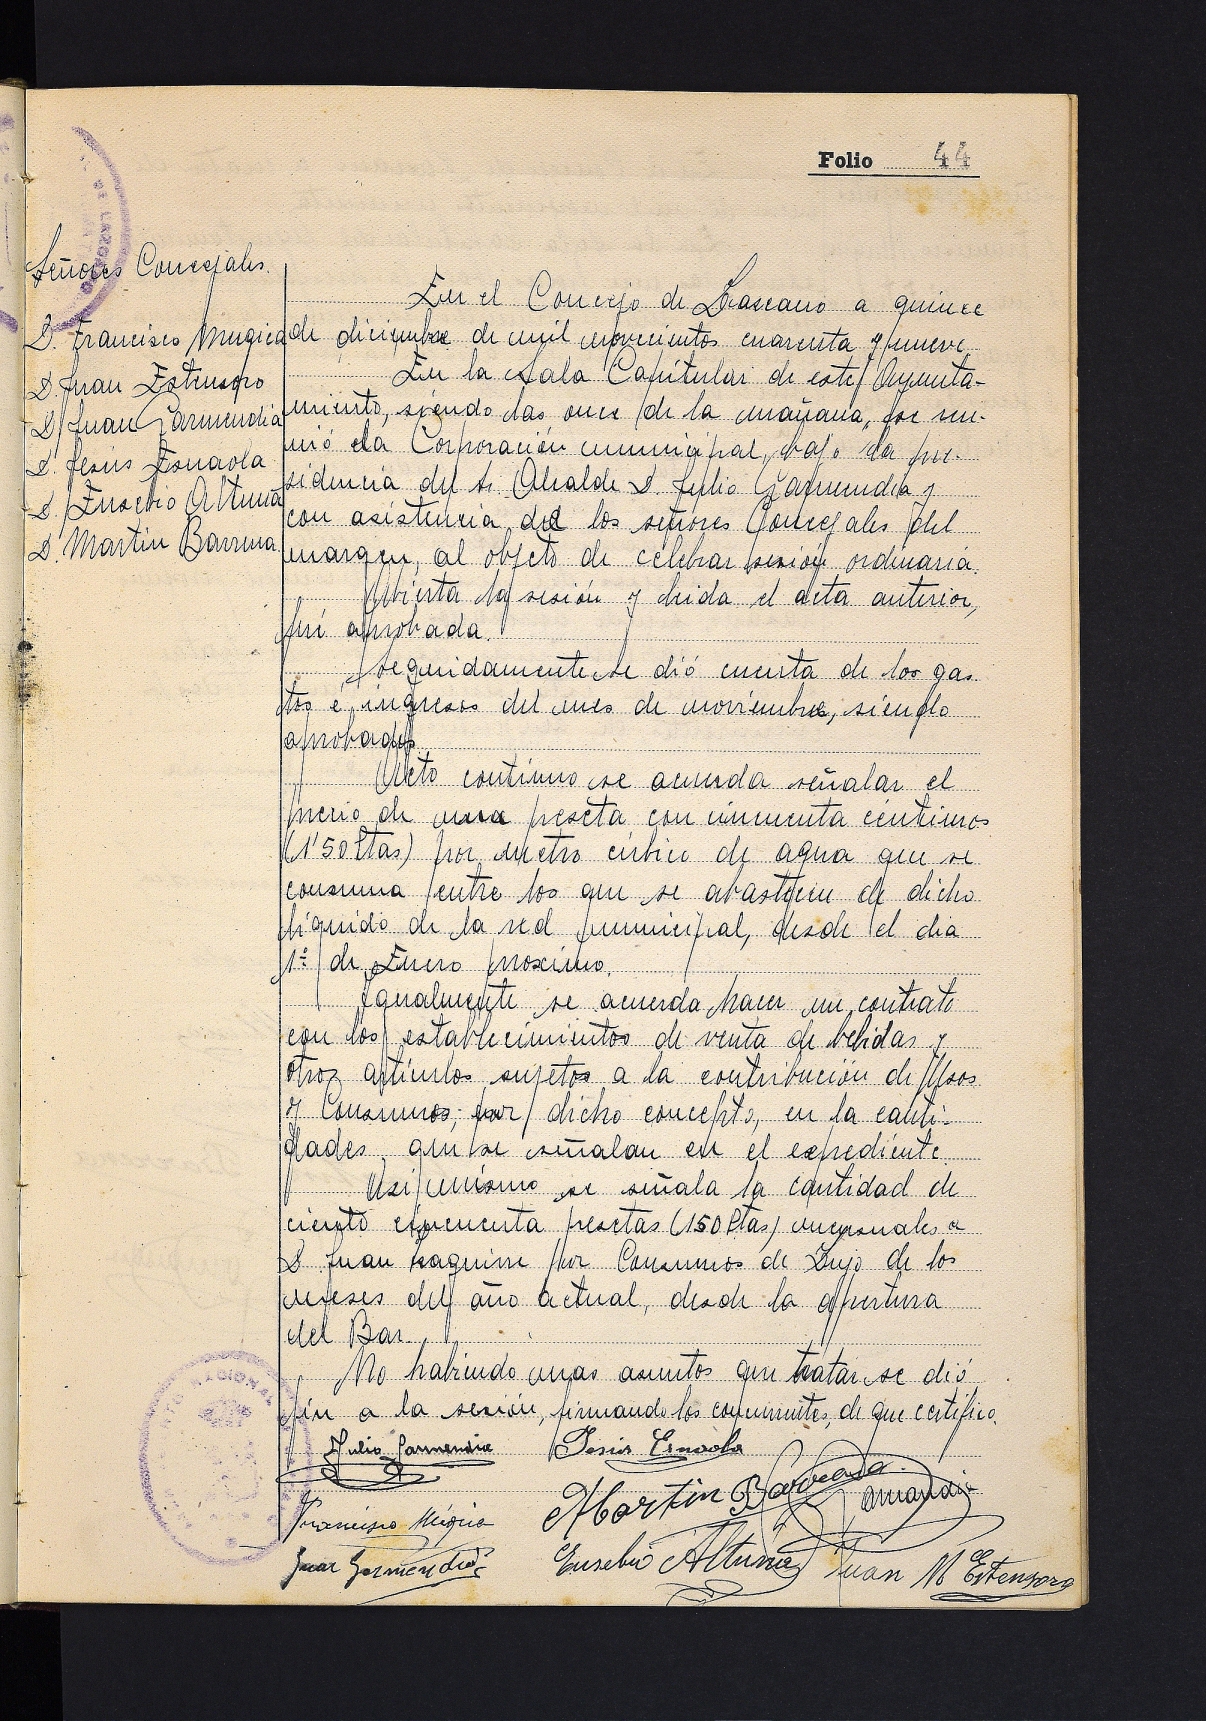 Folio 44
Señores Concejales.
D. Francisco Mugica
D. Juan Estensoro
D. Juan Garmendia
D. Jesús Esnaola
D. Eusebio Altuna
D. Martin Barrena
En el Concejo de Lazcano a quince
de diciembre de mil novecientos cuarenta y nueve
En la Sala Capitular de este Ayunta-
miento, siendo las once de la mañana, se reu-
nió la Corporación municipal, bajo la pre-
sidencia del Sr Alcalde D. Julio Garmendia y
con asistencia de los señores Concejales del
margen, al objeto de celebrar sesión ordinaria.
Abierta la sesión y leida el acta anterior,
fué aprobada.
Seguidamente se dió cuenta de los gas-
tos é ingresos del mes de noviembre, siendo
aprobados.
Acto continuo se acuerda señalar el
precio de una peseta con cincuenta céntimos
(1'50 Ptas) por metro cúbico de agua que se
consuma entre los que se abastecen de dicho
líquido de la red municipal, desde el dia
1º de Enero proximo.
Igualmente se acuerda hacer un contrato
con los establecimientos de venta de bebidas y
otros artículos sujetos a la contribución de Usos
y Consumos, por dicho concepto, en la canti-
dades que se señalan en el expediente.
Asi mismo se señala la cantidad de
ciento cincuenta pesetas (150 Ptas) mensuales a
D. Juan Izaguirre por Consumos de Lujo de los
meses del año actual, desde la apertura
del Bar.
No habiendo mas asuntos que tratar se dió
fin a la sesión, firmando los concurrentes, de que certifico.
Julio Garmendia Jesús Esnaola
Francisco Múgica Martin Barrena
Juan Garmendia Eusebio Altuna Juan Mª Estensoro